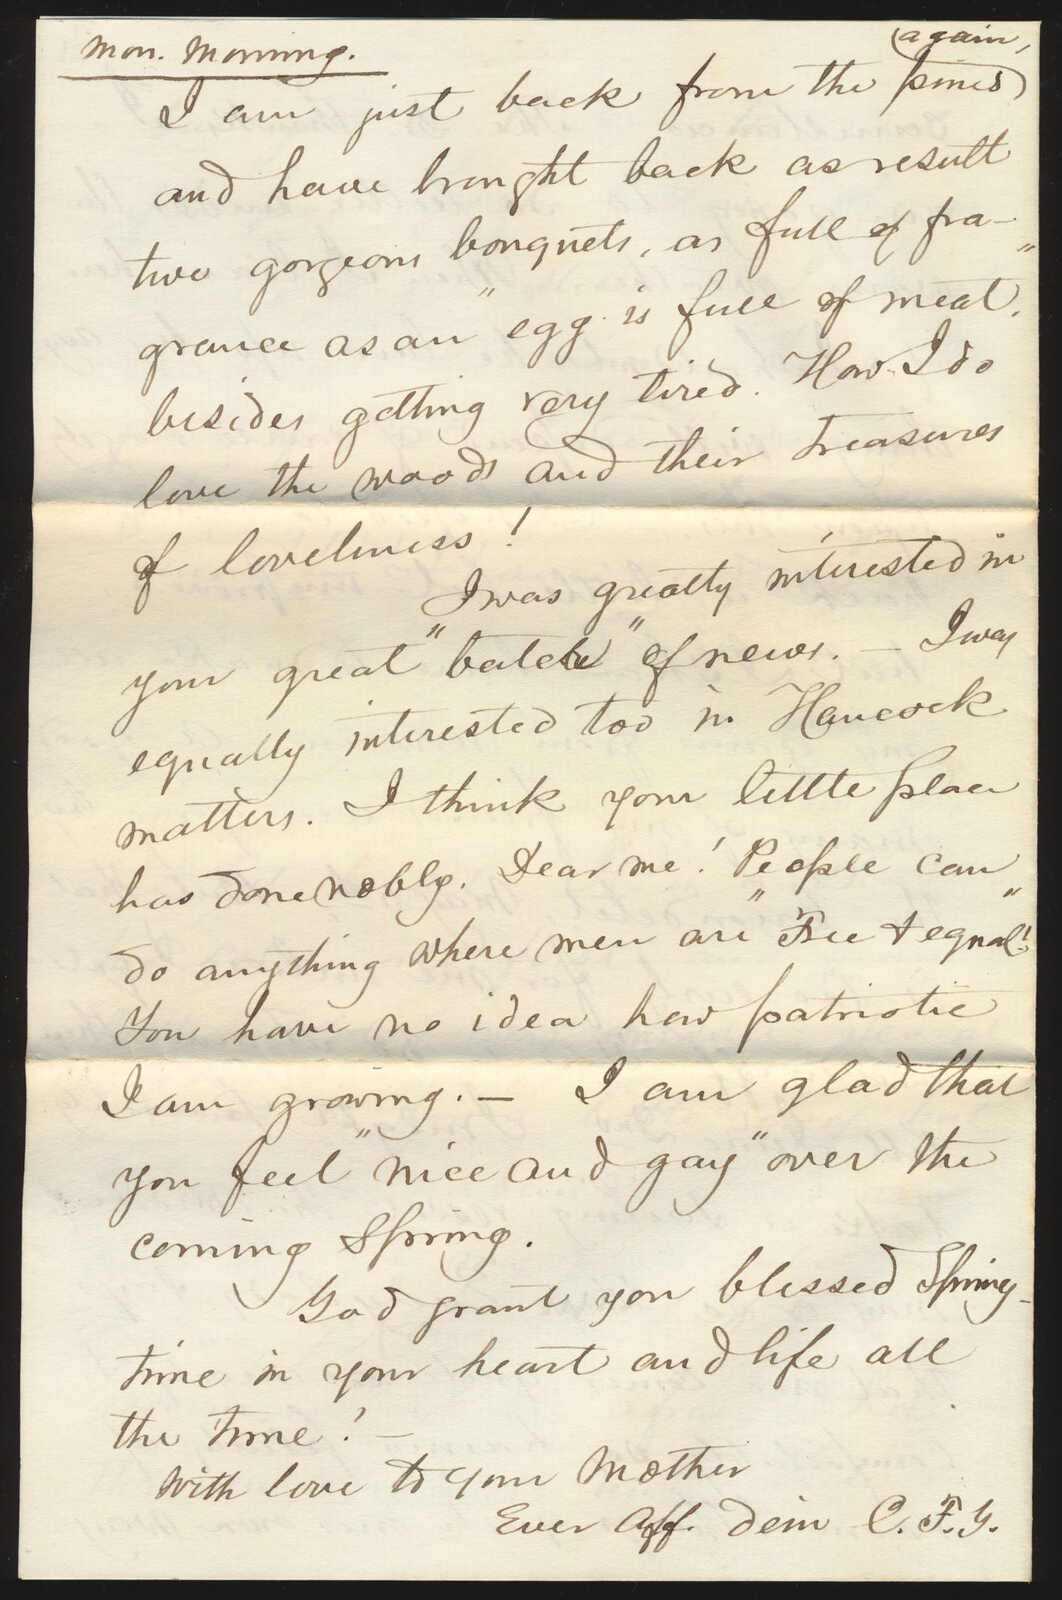 Mon. Morning.
(again,
I am just back from the pines)
and have brought back as result
two gorgeous bouquets, as full of fra-
grance as an "egg is full of meat,"
besides getting very tired. How I do
love the woods and their treasures
of loveliness!
I was greatly interested in
your great "batch" of news. — I was
equally interested too in Hancock
matters. I think your little place
has done nobly. Dear me! People can
do anything where men are "Free & equal!"
You have no idea how patriotic
I am growing. — I am glad that
you feel "nice and gay" over the
coming Spring.
God grant you blessed Spring-
time in your heart and life all
the time! —
With love to your Mother
Ever Aff. dein C. F. G.